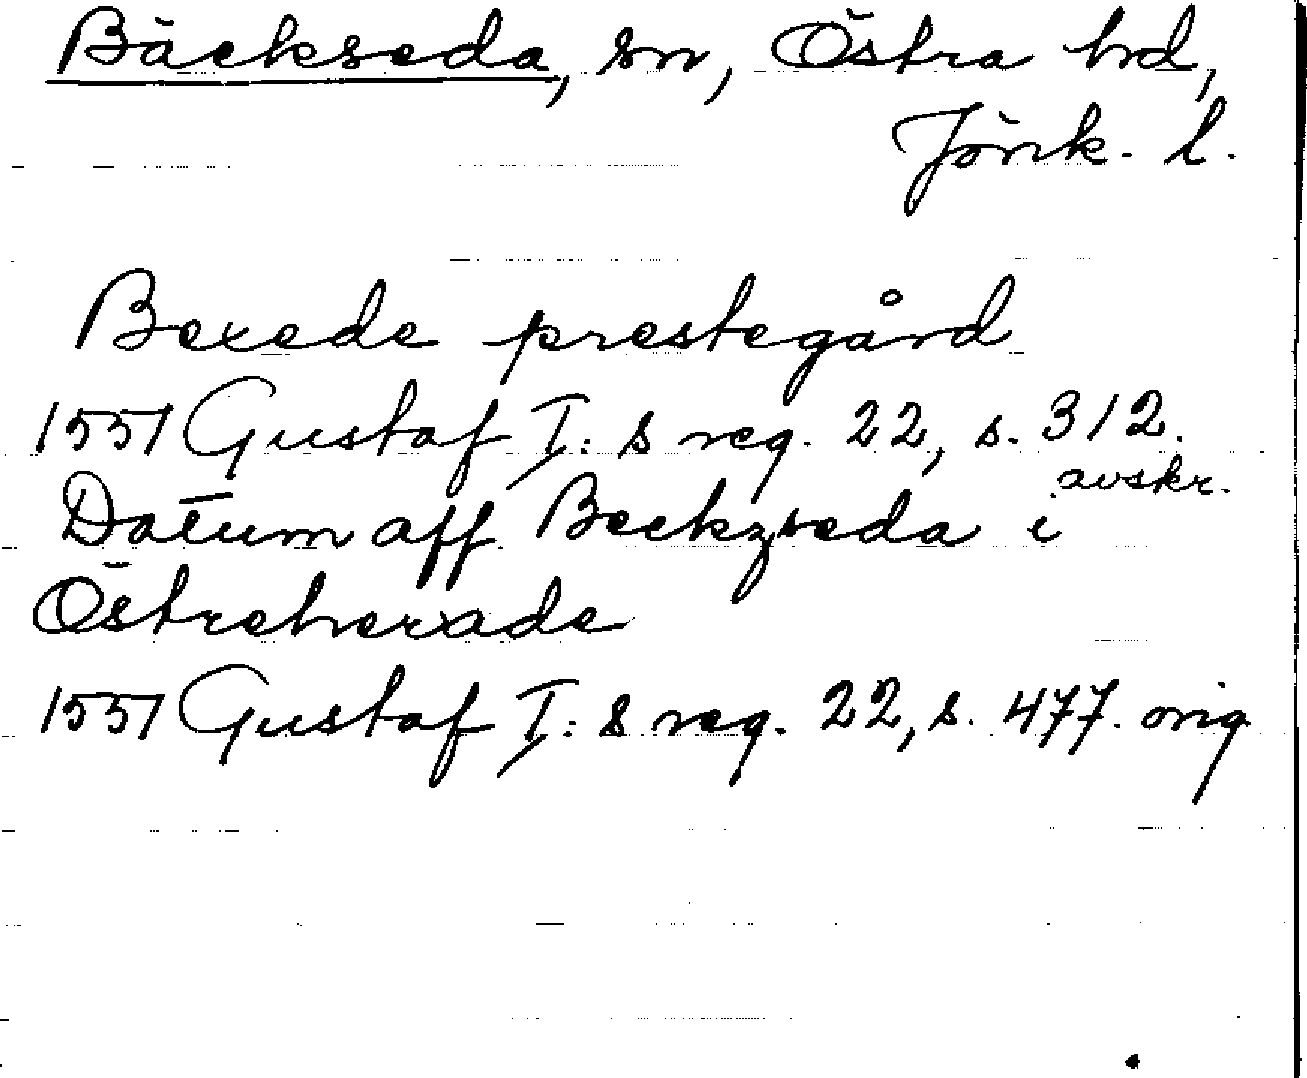 Bäckseda, sn, Östra hd,
Jönk. l.
Bexede prestegård
1551 Gustaf I:s reg. 22, s. 312.
avskr.
Datum aff Beckzseda i
Östreherade
1551 Gustaf I:s reg. 22, s. 477. orig